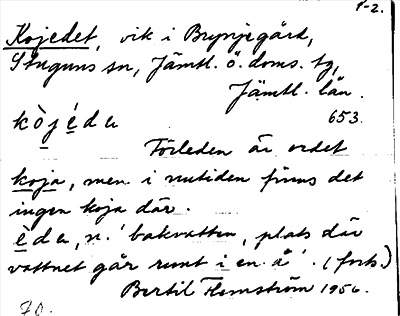 1-2.
Kojedet, vik i Brynjegård,
Stuguns sn, Jämtl. ö. doms. tg,
Jämtl. län.
kòjéda 653.
Förleden är ordet
koja, men i nutiden finns det
ingen koja där.
èda, n. 'bakvatten, plats där
vattnet går runt i en å'. (forts.)
Bertil Flemström 1956.
70.